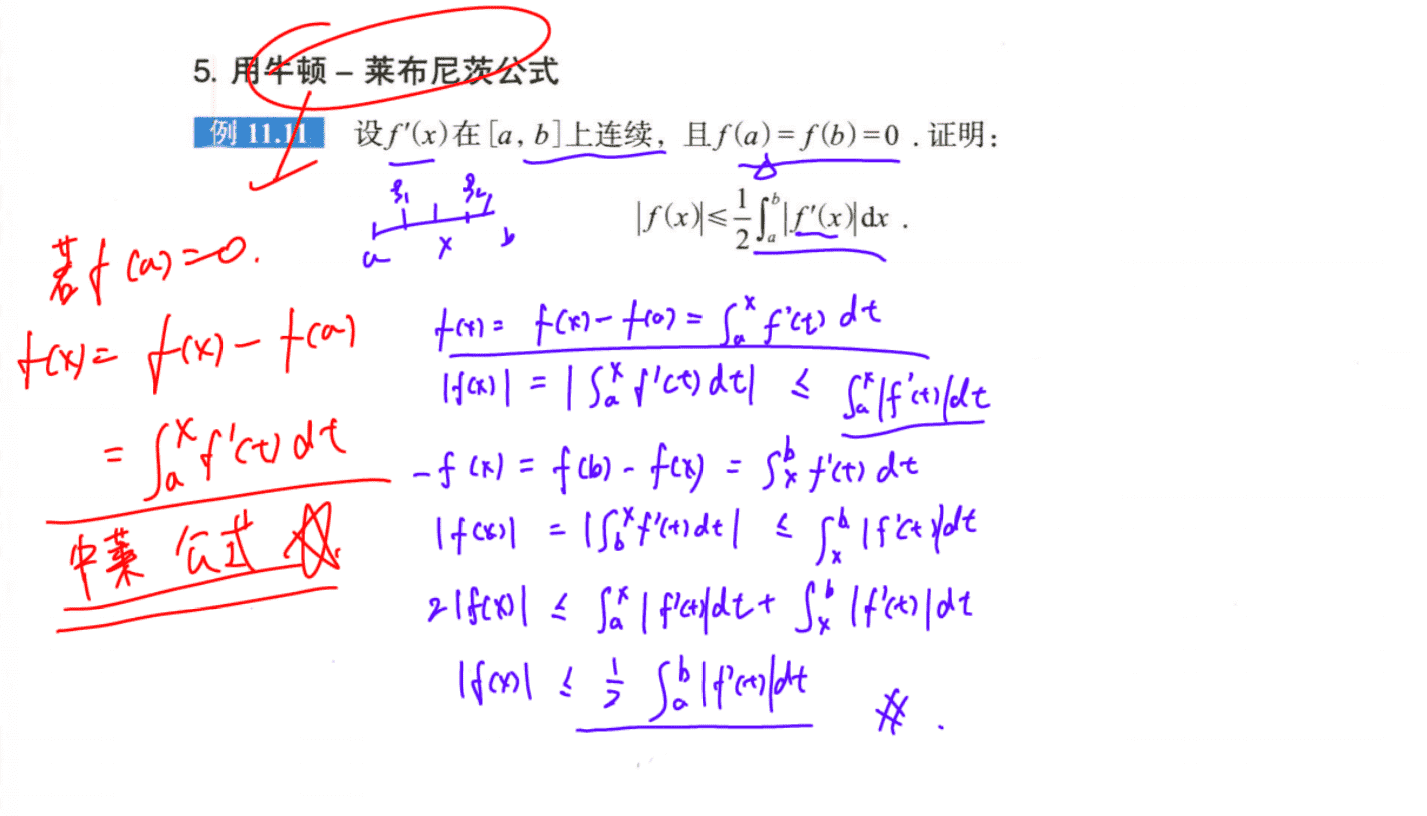 5. 用牛顿－莱布尼茨公式
例 11.11 设f′(x)在[a, b]上连续，且f(a)=f(b)=0．证明：
|f(x)|≤\frac{1}{2}∫_a^b|f′(x)|dx．
ξ₁ ξ₂
a x b
若f(a)=0.
f(x)= f(x)-f(a)
= ∫_a^x f'(t) dt
牛莱 公式
f(x)= f(x)-f(a)= ∫_a^x f'(t) dt
|f(x)| = |∫_a^x f'(t) dt| ≤ ∫_a^x |f'(t)|dt
-f(x) = f(b)-f(x) = ∫_x^b f'(t) dt
|f(x)| = |∫_b^x f'(t)dt| ≤ ∫_x^b |f'(t)|dt
2|f(x)| ≤ ∫_a^x |f'(t)|dt + ∫_x^b |f'(t)|dt
|f(x)| ≤ \frac{1}{2} ∫_a^b |f'(t)|dt #.